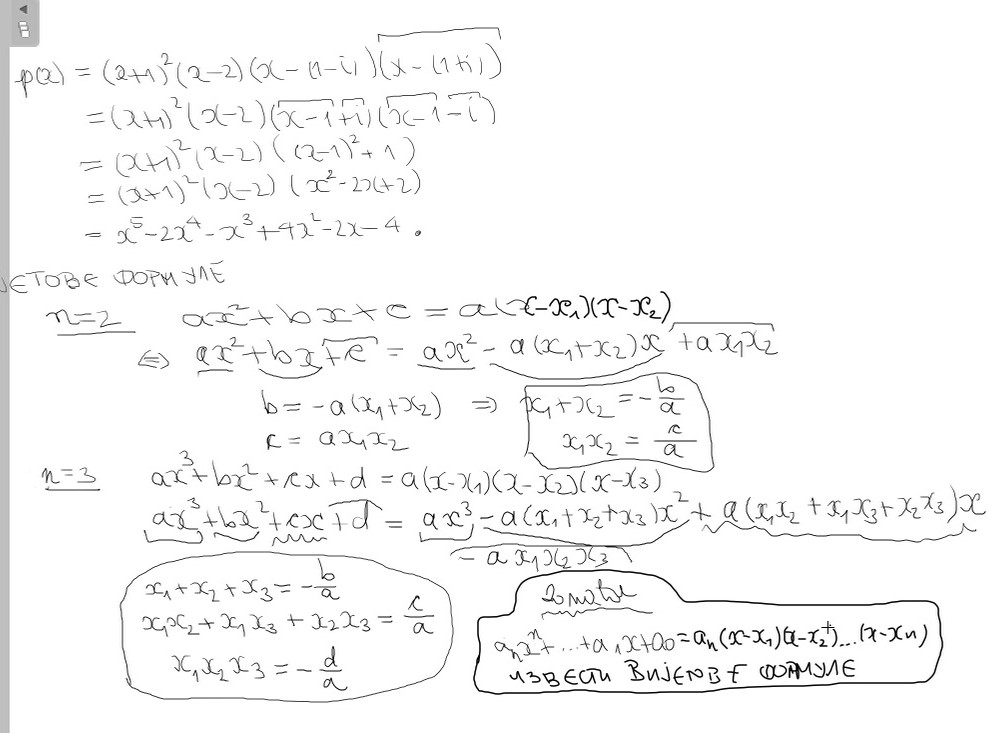 p(x) = (x+1)²(x-2)(x-(1-i))(x-(1+i))
= (x+1)²(x-2)(x-1+i)(x-1-i)
= (x+1)²(x-2)((x-1)²+1)
= (x+1)²(x-2)(x²-2x+2)
= x⁵-2x⁴-x³+4x²-2x-4.
ЈЕТОВЕ ФОРМУЛЕ
n=2 ax²+bx+c = a(x-x₁)(x-x₂)
⇔ ax²+bx+c = ax² - a(x₁+x₂)x + ax₁x₂
b = -a(x₁+x₂) ⇒ x₁+x₂ = -b/a
c = ax₁x₂ x₁x₂ = c/a
n=3 ax³+bx²+cx+d = a(x-x₁)(x-x₂)(x-x₃)
ax³+bx²+cx+d = ax³ - a(x₁+x₂+x₃)x² + a(x₁x₂+x₁x₃+x₂x₃)x
- ax₁x₂x₃
x₁+x₂+x₃ = -b/a
x₁x₂+x₁x₃+x₂x₃ = c/a
x₁x₂x₃ = -d/a
Domaći
aₙxⁿ+...+a₁x+a₀ = aₙ(x-x₁)(x-x₂)...(x-xₙ)
ИЗВЕСТИ ВИЈЕТОВЕ ФОРМУЛЕ